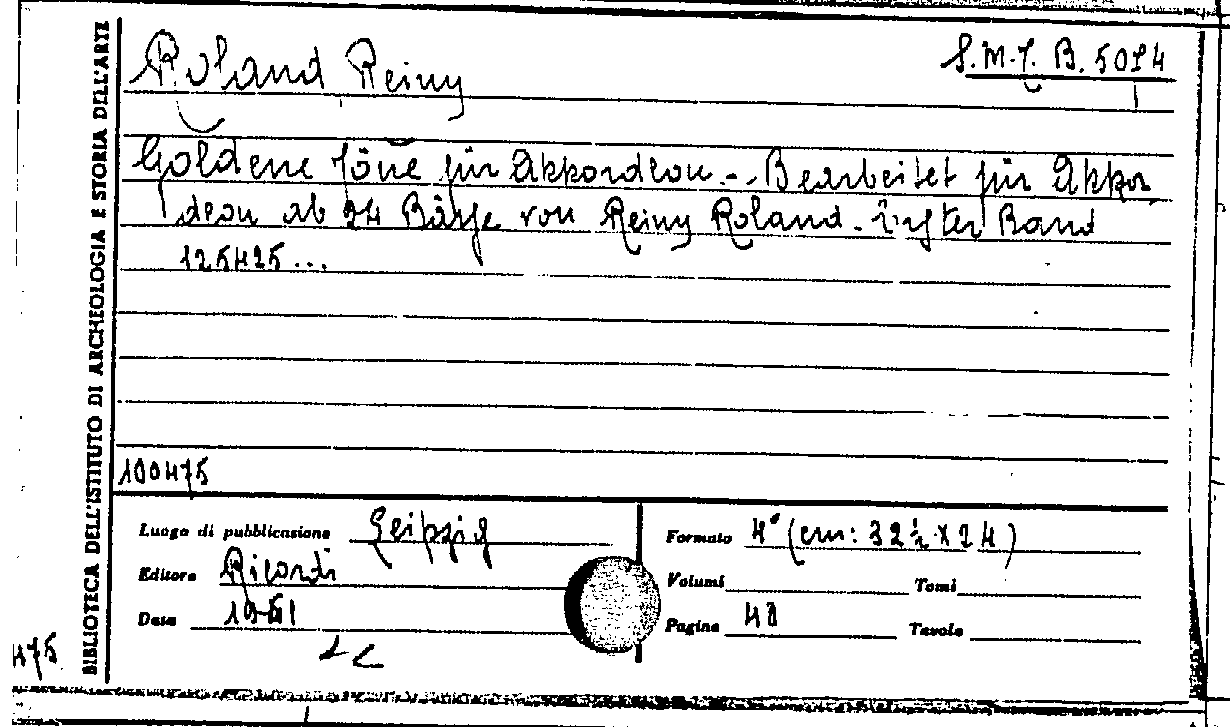 Roland Reiny
S. M. J. B. 50
Goldene Töne für Akkordeon. - Bearbeitet für Akkor
deon ab 24 Bässe von Reiny Roland. Band
125425...
100475
Luogo di pubblicazione Leipzig
Editore Ricordi
Data
Formato 4° (cm: 32½ x 24)
Volumi Tomi
Pagine 48 Tavole
475
BIBLIOTECA DELL'ISTITUTO DI ARCHEOLOGIA E STORIA DELL'ARTE